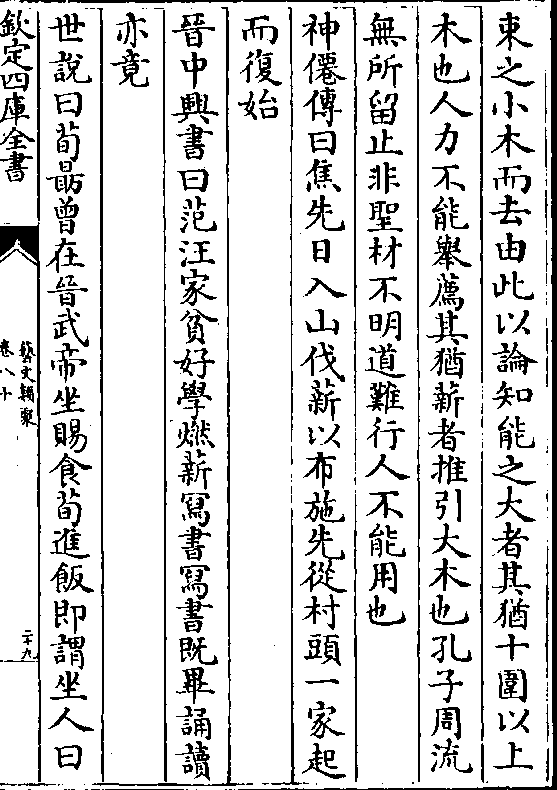 束之小木而去由此以論知能之大者其猶十圍以上
木也人力不能舉薦其猶薪者推引大木也孔子周流
無所留止非聖材不明道難行人不能用也
神僊傳曰焦先日入山伐薪以布施先從村頭一家起
而復始
晉中興書曰范汪家貧好學燃薪冩書冩書既畢誦讀
亦竟
世説曰荀朂曾在晉武帝坐賜食荀進飯即謂坐人曰
欽定四庫全書
藝文類聚
卷八十
二十九